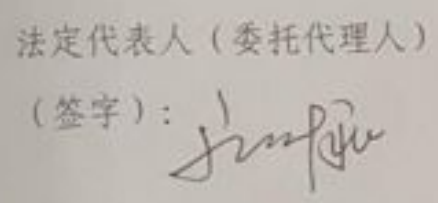 法定代表人（委托代理人）
（签字）：